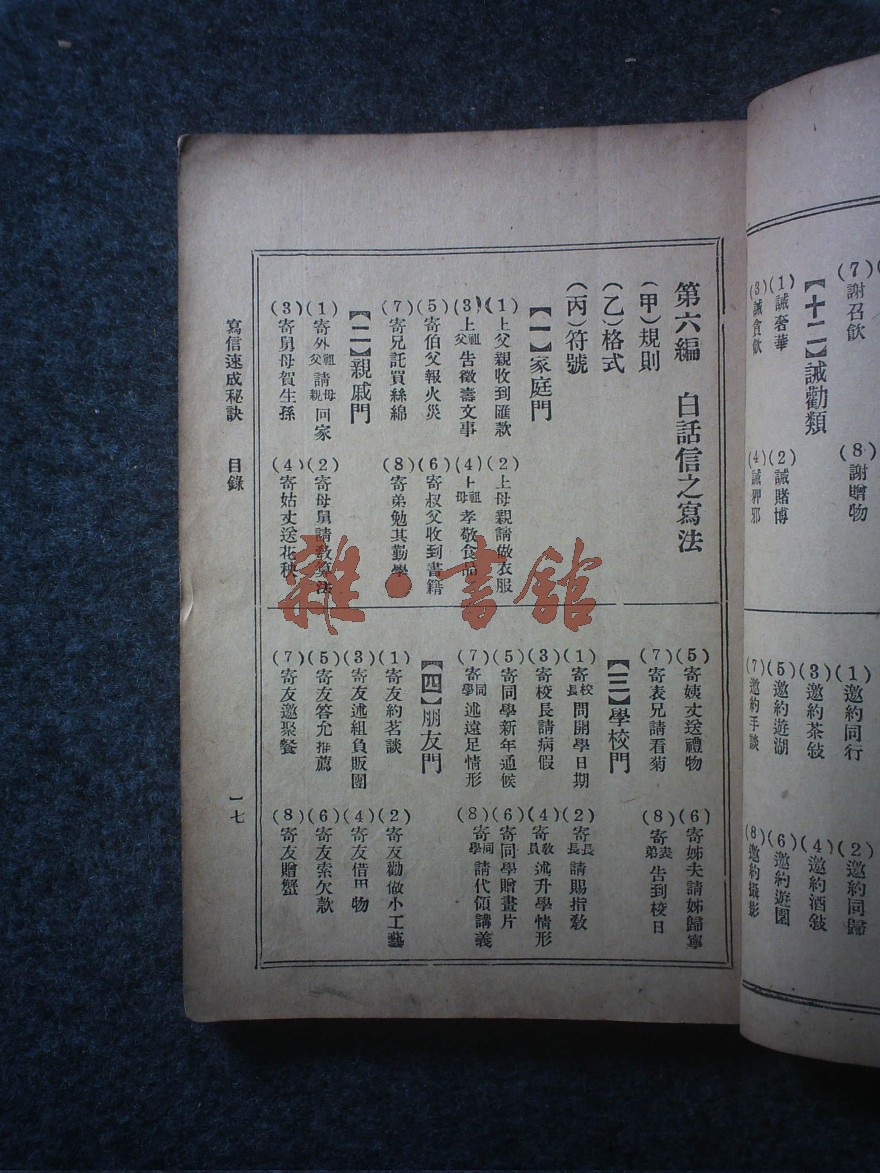 (7)謝召飲
(8)謝贈物
【十二】誡勸類
(1)誡奢華
(2)誡賭博
(3)誡貪飲
(4)誡狎邪
(1)邀約同行
(2)邀約同歸
(3)邀約茶敍
(4)邀約酒敍
(5)邀約遊湖
(6)邀約遊園
(7)邀約手談
(8)邀約攝影
第六編 白話信之寫法
(甲)規則
(乙)格式
(丙)符號
【一】家庭門
(1)上父親收到匯款
(2)上母親請做衣服
(3)上祖父告徵壽文事
(4)上祖母孝敬食品
(5)寄伯父報火災
(6)寄叔父收到書籍
(7)寄兄託買絲綿
(8)寄弟勉其勤學
【二】親戚門
(1)寄外祖父請母親回家
(2)寄母舅請教算法
(3)寄舅母賀生孫
(4)寄姑丈送花秧
(5)寄姨丈送禮物
(6)寄姊夫請姊歸寧
(7)寄表兄請看菊
(8)寄表弟告到校日
【三】學校門
(1)寄校長問開學日期
(2)寄長請賜指教
(3)寄校長請病假
(4)寄教員述升學情形
(5)寄同學新年通候
(6)寄同學贈畫片
(7)寄同學述遠足情形
(8)寄同學請代領講義
【四】朋友門
(1)寄友約茗談
(2)寄友勸做小工藝
(3)寄友述組負販團
(4)寄友借用物
(5)寄友答允推薦
(6)寄友索欠款
(7)寄友邀聚餐
(8)寄友贈蟹
寫信速成秘訣 目錄
一七
雜·書館